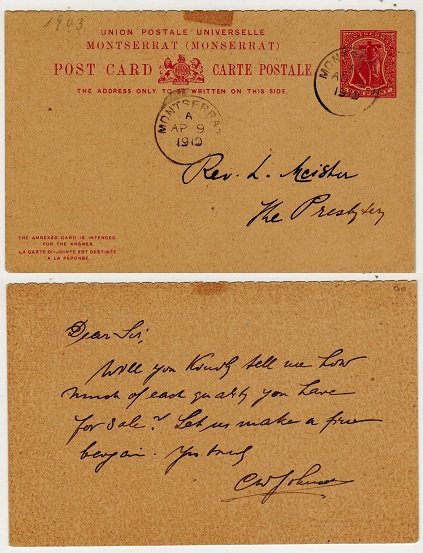 1903
UNION POSTALE UNIVERSELLE
MONTSERRAT (MONSERRAT)
POST CARD CARTE POSTALE
THE ADDRESS ONLY TO BE WRITTEN ON THIS SIDE.
MONTSERRAT
MONTSERRAT
A
AP 9
1910
A
1910
Rev. L. Meister
The Presbytery
THE ANNEXED CARD IS INTENDED
FOR THE ANSWER.
LA CARTE CI-JOINTE EST DESTINÉE
A LA RÉPONSE.
Dear Sir,
Will you Kindly tell me how
much of each quality you have
for sale? Let us make a fine
bargain. Yrs truly
CW Johnson